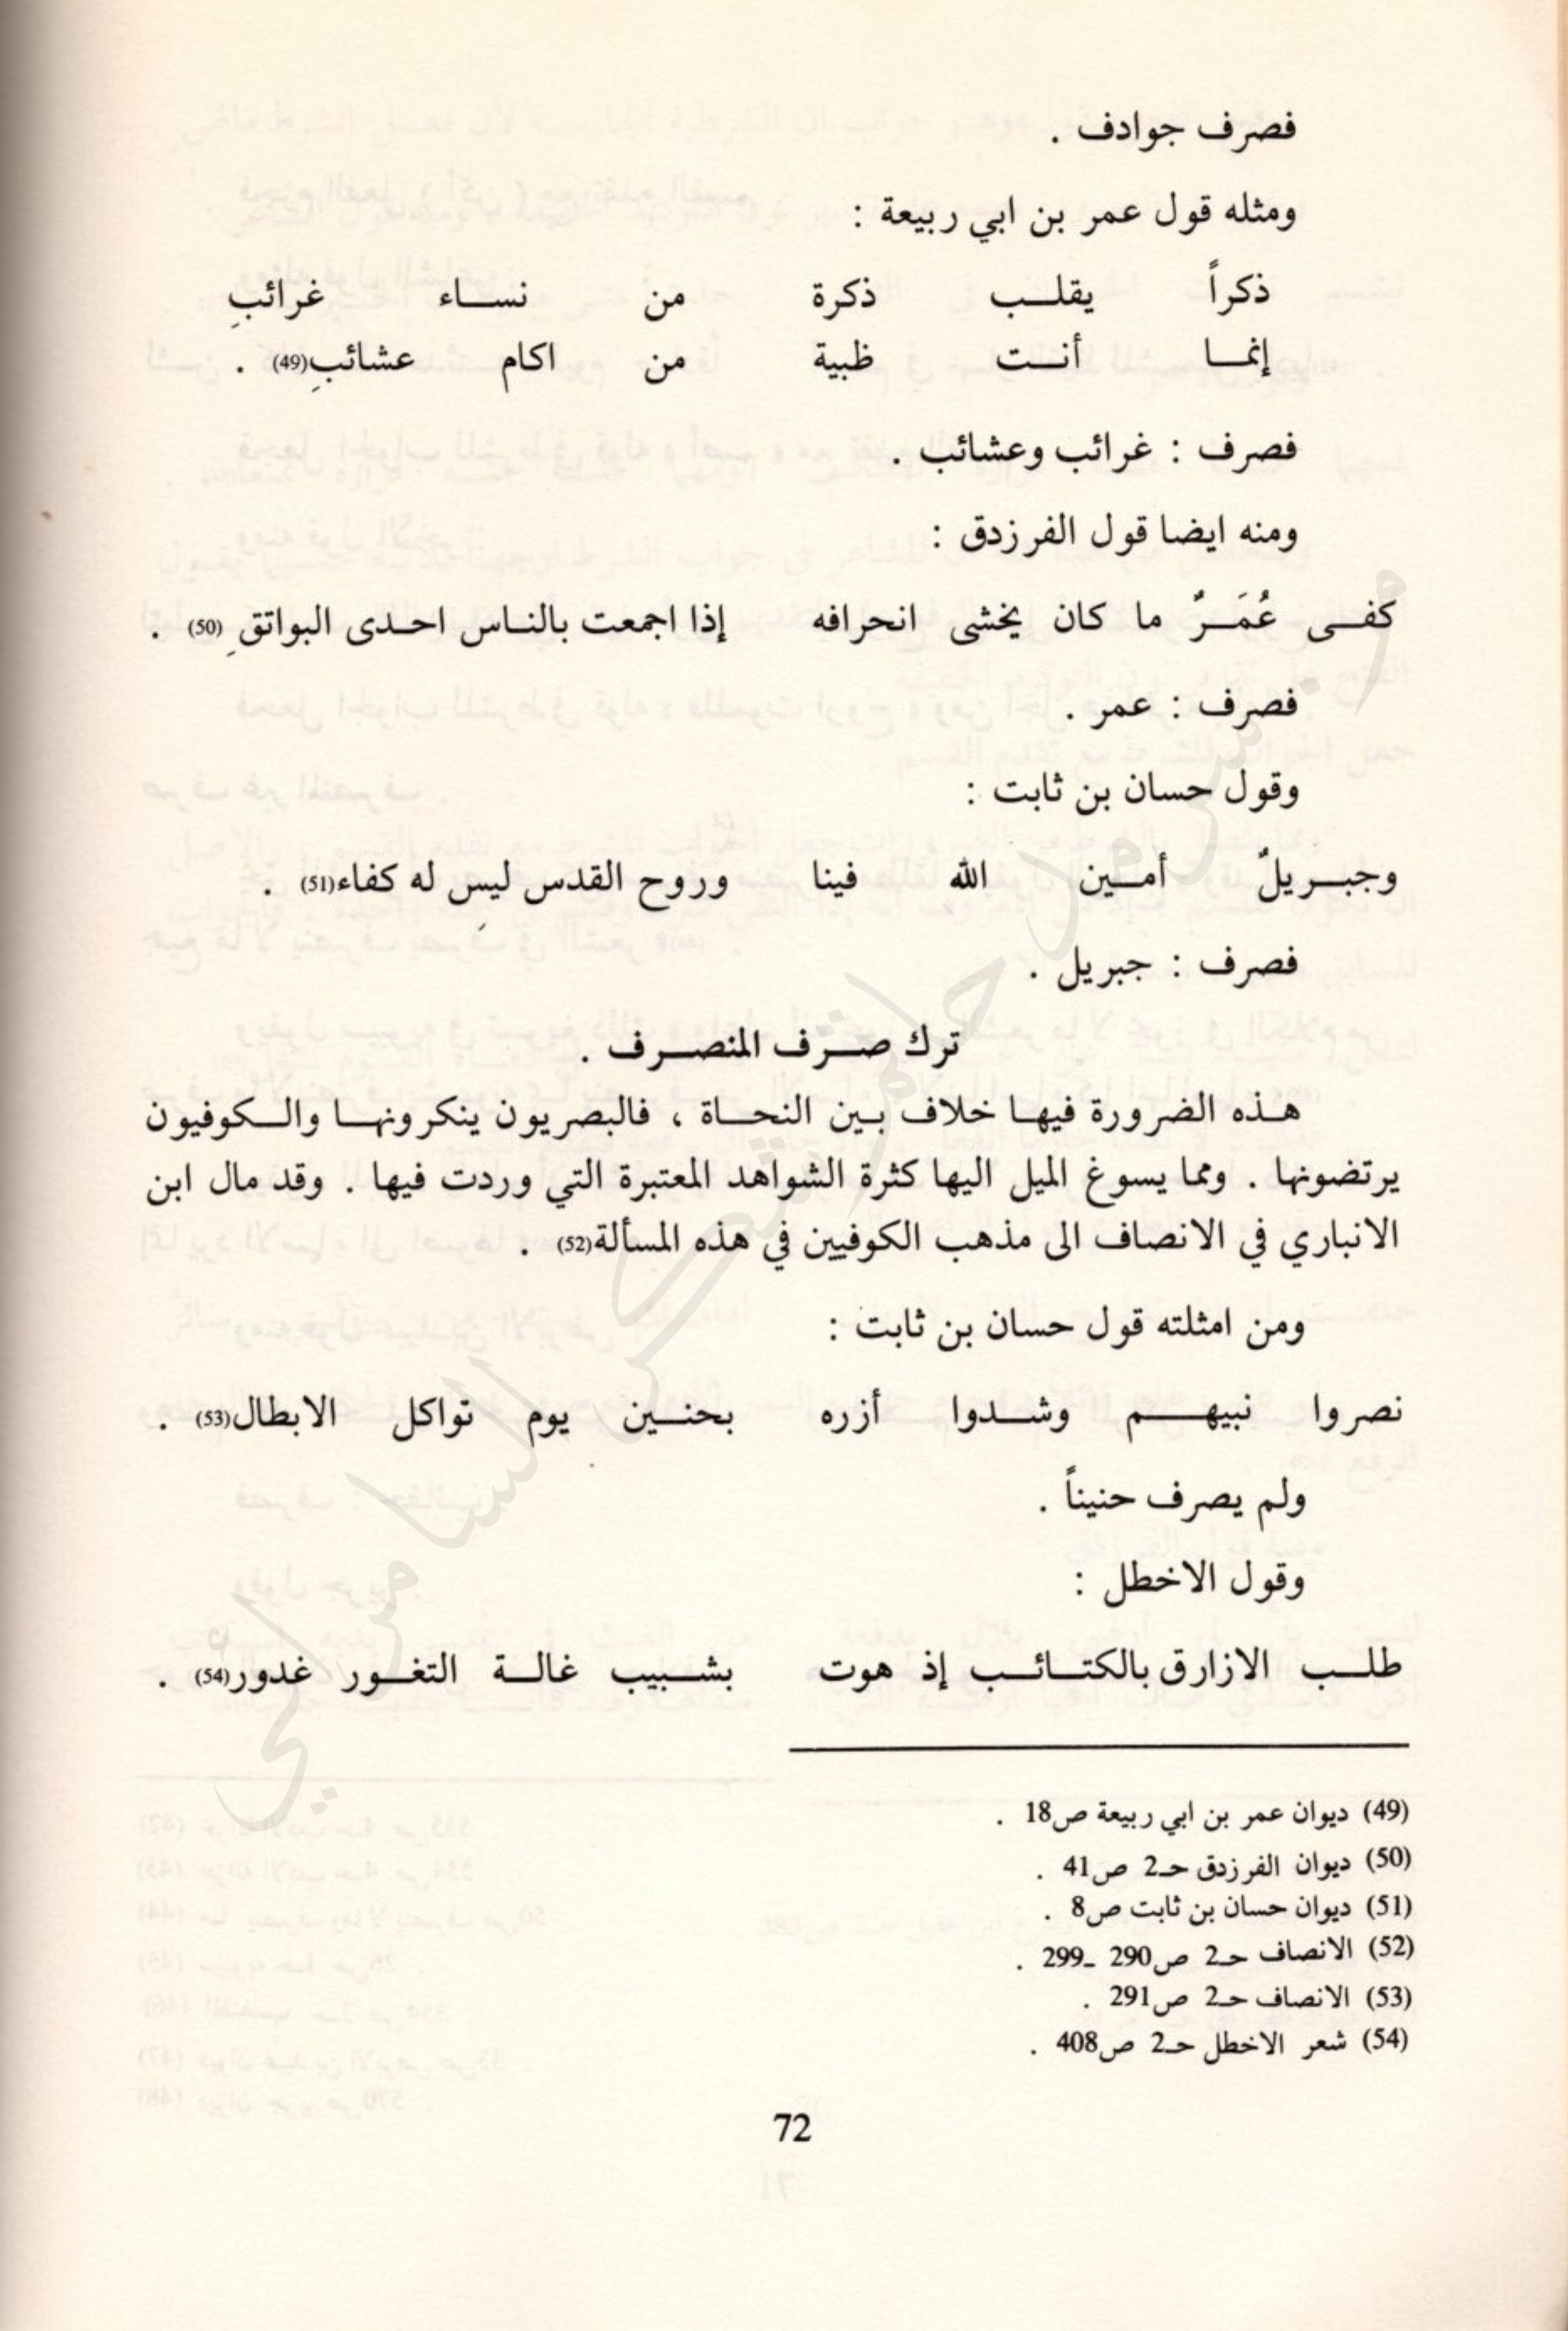 فصرف جوادف .
ومثله قول عمر بن ابي ربيعة :
ذكراً يقلب ذكرة من نساء غرائبِ
إنما أنت ظبية من اكام عشائبِ(49) .
فصرف : غرائب وعشائب .
ومنه ايضا قول الفرزدق :
كفى عُمَرٌ ما كان يخشى انحرافه إذا اجمعت بالناس احدى البواتقِ (50) .
فصرف : عمر .
وقول حسان بن ثابت :
وجبريلٌ أمين الله فينا وروح القدس ليس له كفاء(51) .
فصرف : جبريل .
ترك صرف المنصرف .
هذه الضرورة فيها خلاف بين النحاة ، فالبصريون ينكرونها والكوفيون
يرتضونها . ومما يسوغ الميل اليها كثرة الشواهد المعتبرة التي وردت فيها . وقد مال ابن
الانباري في الانصاف الى مذهب الكوفيين في هذه المسألة(52) .
ومن امثلته قول حسان بن ثابت :
نصروا نبيهم وشدوا أزره بحنين يوم تواكل الابطال(53) .
ولم يصرف حنيناً .
وقول الاخطل :
طلب الازارق بالكتائب إذ هوت بشبيب غالة التغور غدور(54) .
(49) ديوان عمر بن ابي ربيعة ص18 .
(50) ديوان الفرزدق حـ2 ص41 .
(51) ديوان حسان بن ثابت ص8 .
(52) الانصاف حـ2 ص290 ـ299 .
(53) الانصاف حـ2 ص291 .
(54) شعر الاخطل حـ2 ص408 .
72